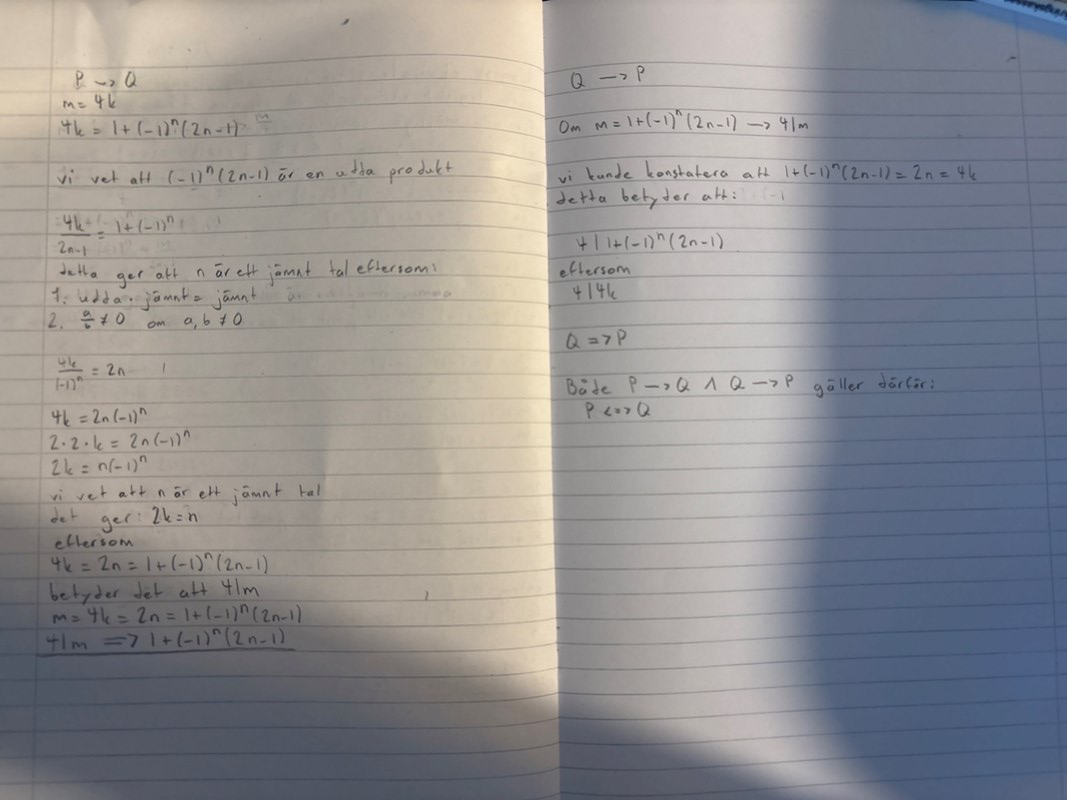 P → Q
m = 4k
4k = 1+(-1)ⁿ(2n-1)
vi vet att (-1)ⁿ(2n-1) är en udda produkt
4k/2n-1 = 1+(-1)ⁿ
detta ger att n är ett jämnt tal eftersom:
1. udda · jämnt = jämnt
2. a/b ≠ 0 om a, b ≠ 0
4k/(-1)ⁿ = 2n
4k = 2n(-1)ⁿ
2·2·k = 2n(-1)ⁿ
2k = n(-1)ⁿ
vi vet att n är ett jämnt tal
det ger: 2k = n
eftersom
4k = 2n = 1+(-1)ⁿ(2n-1)
betyder det att 4|m
m = 4k = 2n = 1+(-1)ⁿ(2n-1)
4|m => 1+(-1)ⁿ(2n-1)
Q → P
Om m = 1+(-1)ⁿ(2n-1) → 4|m
vi kunde konstatera att 1+(-1)ⁿ(2n-1) = 2n = 4k
detta betyder att:
4 | 1+(-1)ⁿ(2n-1)
eftersom
4|4k
Q => P
Både P → Q ∧ Q → P gäller därför:
P <=> Q